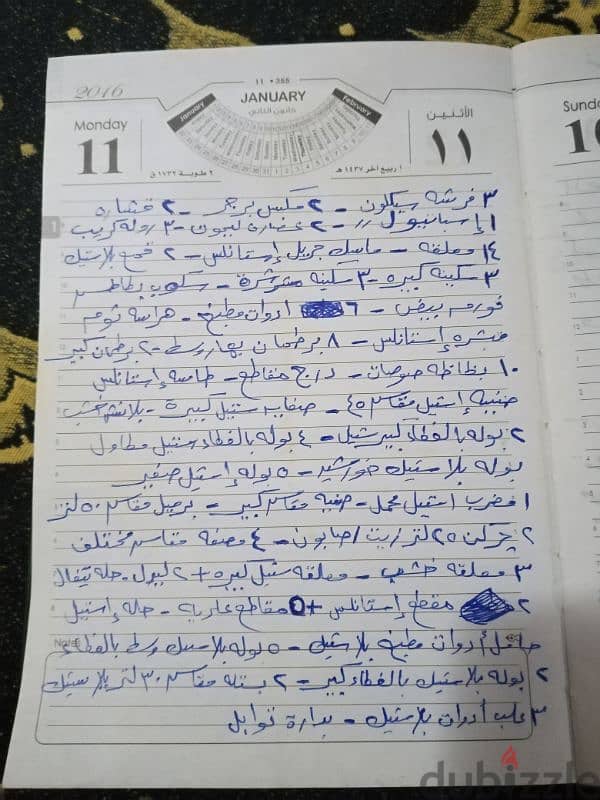 2016
11 • 355
JANUARY
كانون الثاني
January
February
Monday
11
الأثنين
١١
٢ طوبة ١٧٣٢ ق
١ ربيع آخر ١٤٣٧ هـ
Sunday
10
٣ فرشه سيلكون - ٢ مكبس برجر - ٢ قشاره
١ إسباتيول // - ٢ عصاره ليمون - ٣ رولة كريب
١٤ معلقه - ماسك جريل إستانلس - ٢ قمع بلاستيك
٣ سكينه كبيره - ٣ سكينه مشرشرة - سكوب بطاطس
فورمه بيض - ٦ ادوات مطبخ - هراسة ثوم
مبشره إستانلس - ٨ برطمان بهار وسط - ٢ برطمان كبير
١٠ بظاظة صوصات - درج مقاطع - طاسه إستانلس
صنيه إستيل مقاس ٤٥ - صفايه ستيل كبيرة - خشب
٢ بوله بالغطاء كبير ستيل - ٤ بوله بالغطاء ستيل مطاول
بوله بلاستيك خورشيد - ٥ بوله إستيل صغير
١ مضرب استيل - صنيه مقاس كبير - برميل مقاس ٥٠ لتر
٢ چركن ٢٥ لتر زيت / صابون - ٤ مصفه مقاس مختلف
٣ معلقه خشب - معلقه ستيل كبيره + ٢ - حله تيفال
٢ مقطع إستانلس + ٥ مقاطع عاديه - حله إستيل
حامل أدوات مطبخ بلاستيك - ٥ بوله بلاستيك وسط بالغطاء
Note
٢ بوله بلاستيك بالغطاء كبير - ٢ بستله مقاس ٣٠ لتر بلاستيك
٣ علب أدوات بلاستيك - بدارة توابل
dubizzle